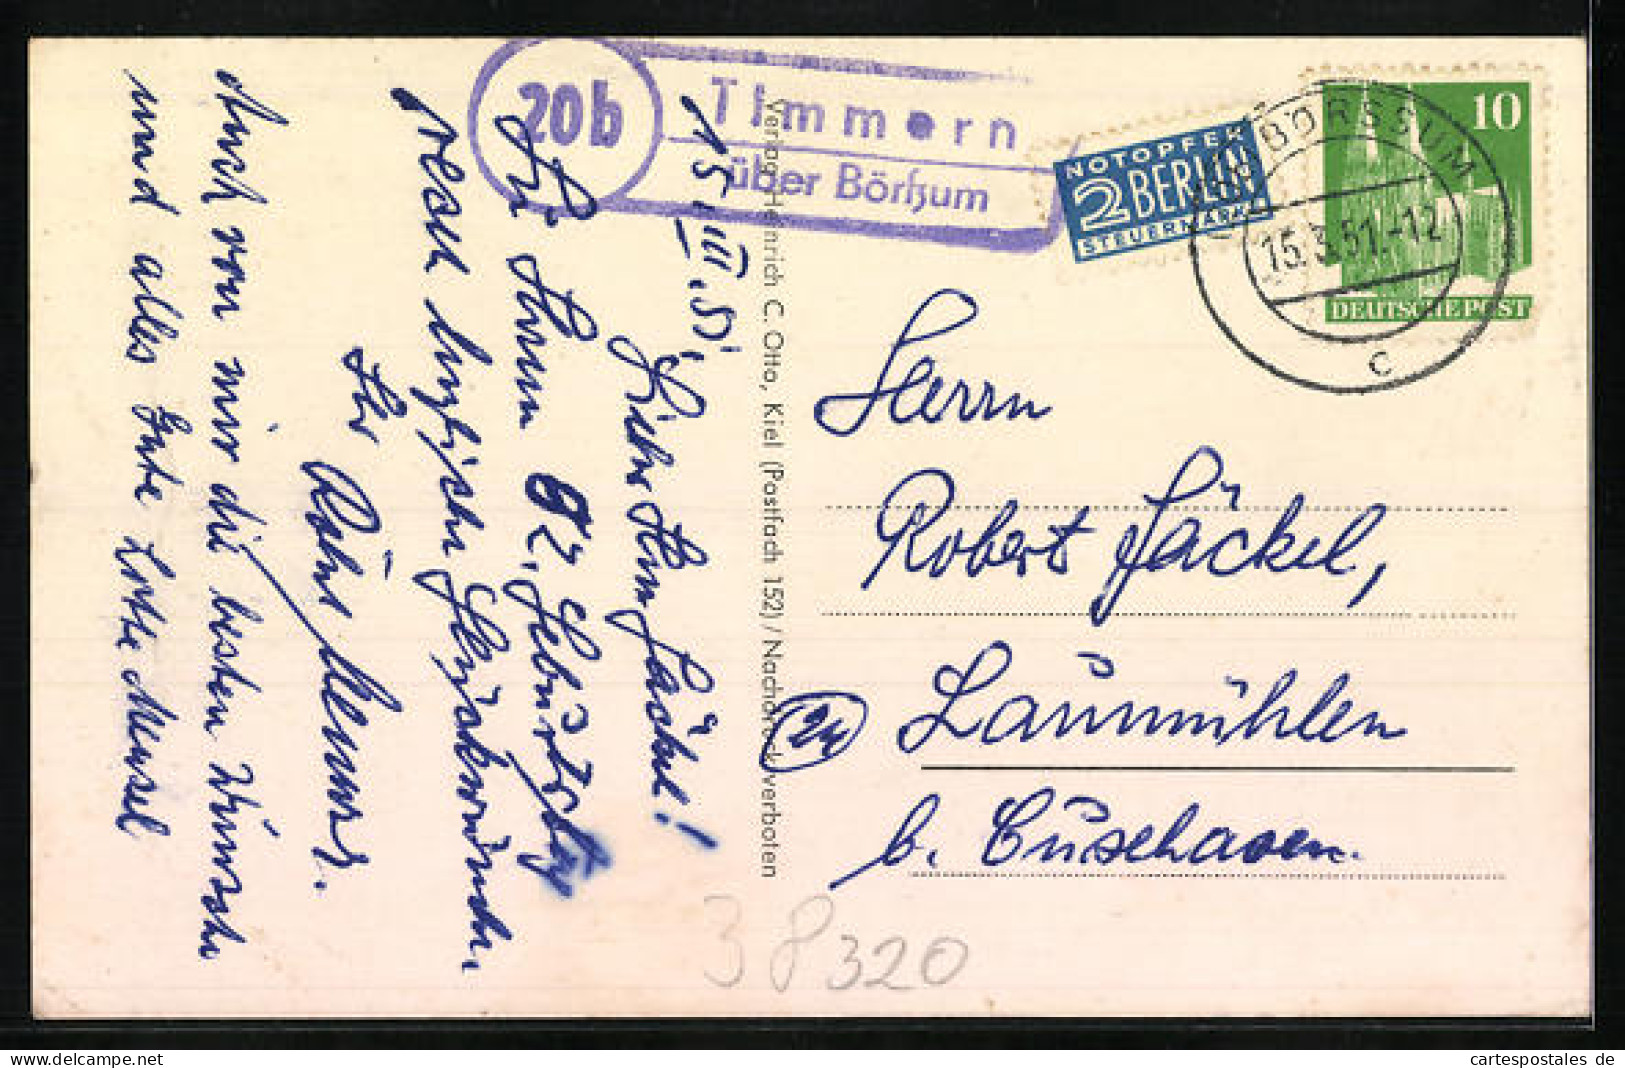 20b
Timmern
über Börßum
NOTOPFER
2 BERLIN
STEUERMARKE
10
DEUTSCHE POST
BÖRSSUM
15.3.51.-12
c
15. III. 51.
Lieber Herr Jäckel!
Zu Ihrem 62. Geburtstag
recht herzliche Glückwünsche.
Ihr
Auch von mir die besten Wünsche
und alles Gute Lotte Mensel
Verlag Heinrich C. Otto, Kiel (Postfach 152) / Nachdruck verboten
Herrn
Robert Jäckel,
24
Laumühlen
b. Cuxhaven.
38320
cartespostales.de